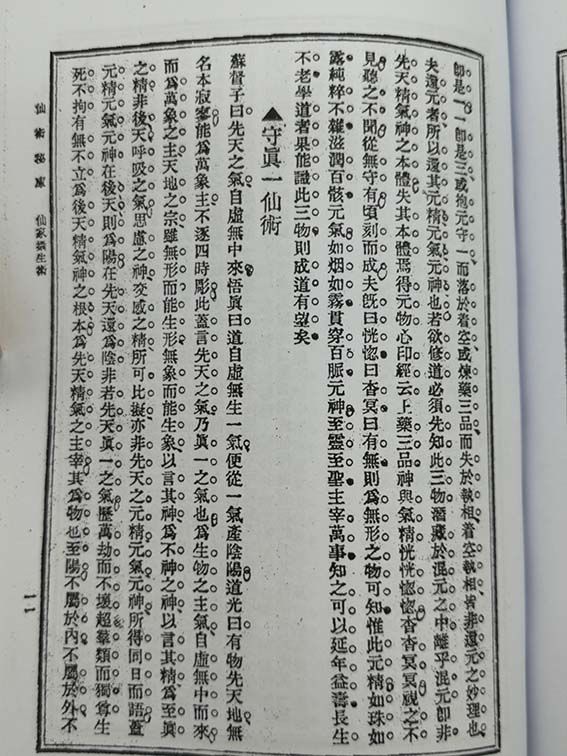 卽是一一卽是三或抱元守一而落於着空或煉藥三品而失於執相着空執相皆非還元之妙理也
夫還元者所以還其元精元氣元神也若欲修道必須先知此三物潛藏於混元之中離乎混元卽非
先天精氣神之本體失其本體焉得元物心印經云上藥三品神與氣精恍恍惚惚杳杳冥冥視之不
見聽之不聞從無守有頃刻而成夫旣曰恍惚曰杳冥曰有無則爲無形之物可知惟此元精如珠如
露純粹不雜滋潤百骸元氣如烟如霧貫穿百脈元神至靈至聖主宰萬事知之可以延年益壽長生
不老學道者果能識此三物則成道有望矣
▲守眞一仙術
蘇督子曰先天之氣自虛無中來悟眞曰道自虛無生一氣便從一氣產陰陽道光曰有物先天地無
名本寂寥能爲萬象主不逐四時彫此蓋言先天之氣乃眞一之氣也爲生物之主氣自虛無中而來
而爲萬象之主天地之宗雖無形而能生形無象而能生象以言其神爲不神之神以言其精爲至眞
之精非後天呼吸之氣思慮之神交感之精所可比擬亦非先天之元精元氣元神所得同日而語蓋
元精元氣元神在後天則爲陽在先天還爲陰非若先天眞一之氣歷萬劫而不壞超羣類而獨尊生
死不拘有無不立爲後天精氣神之根本爲先天精氣之主宰其爲物也至陽不屬於內不屬於外不
仙術秘庫 仙家攝生術
一一